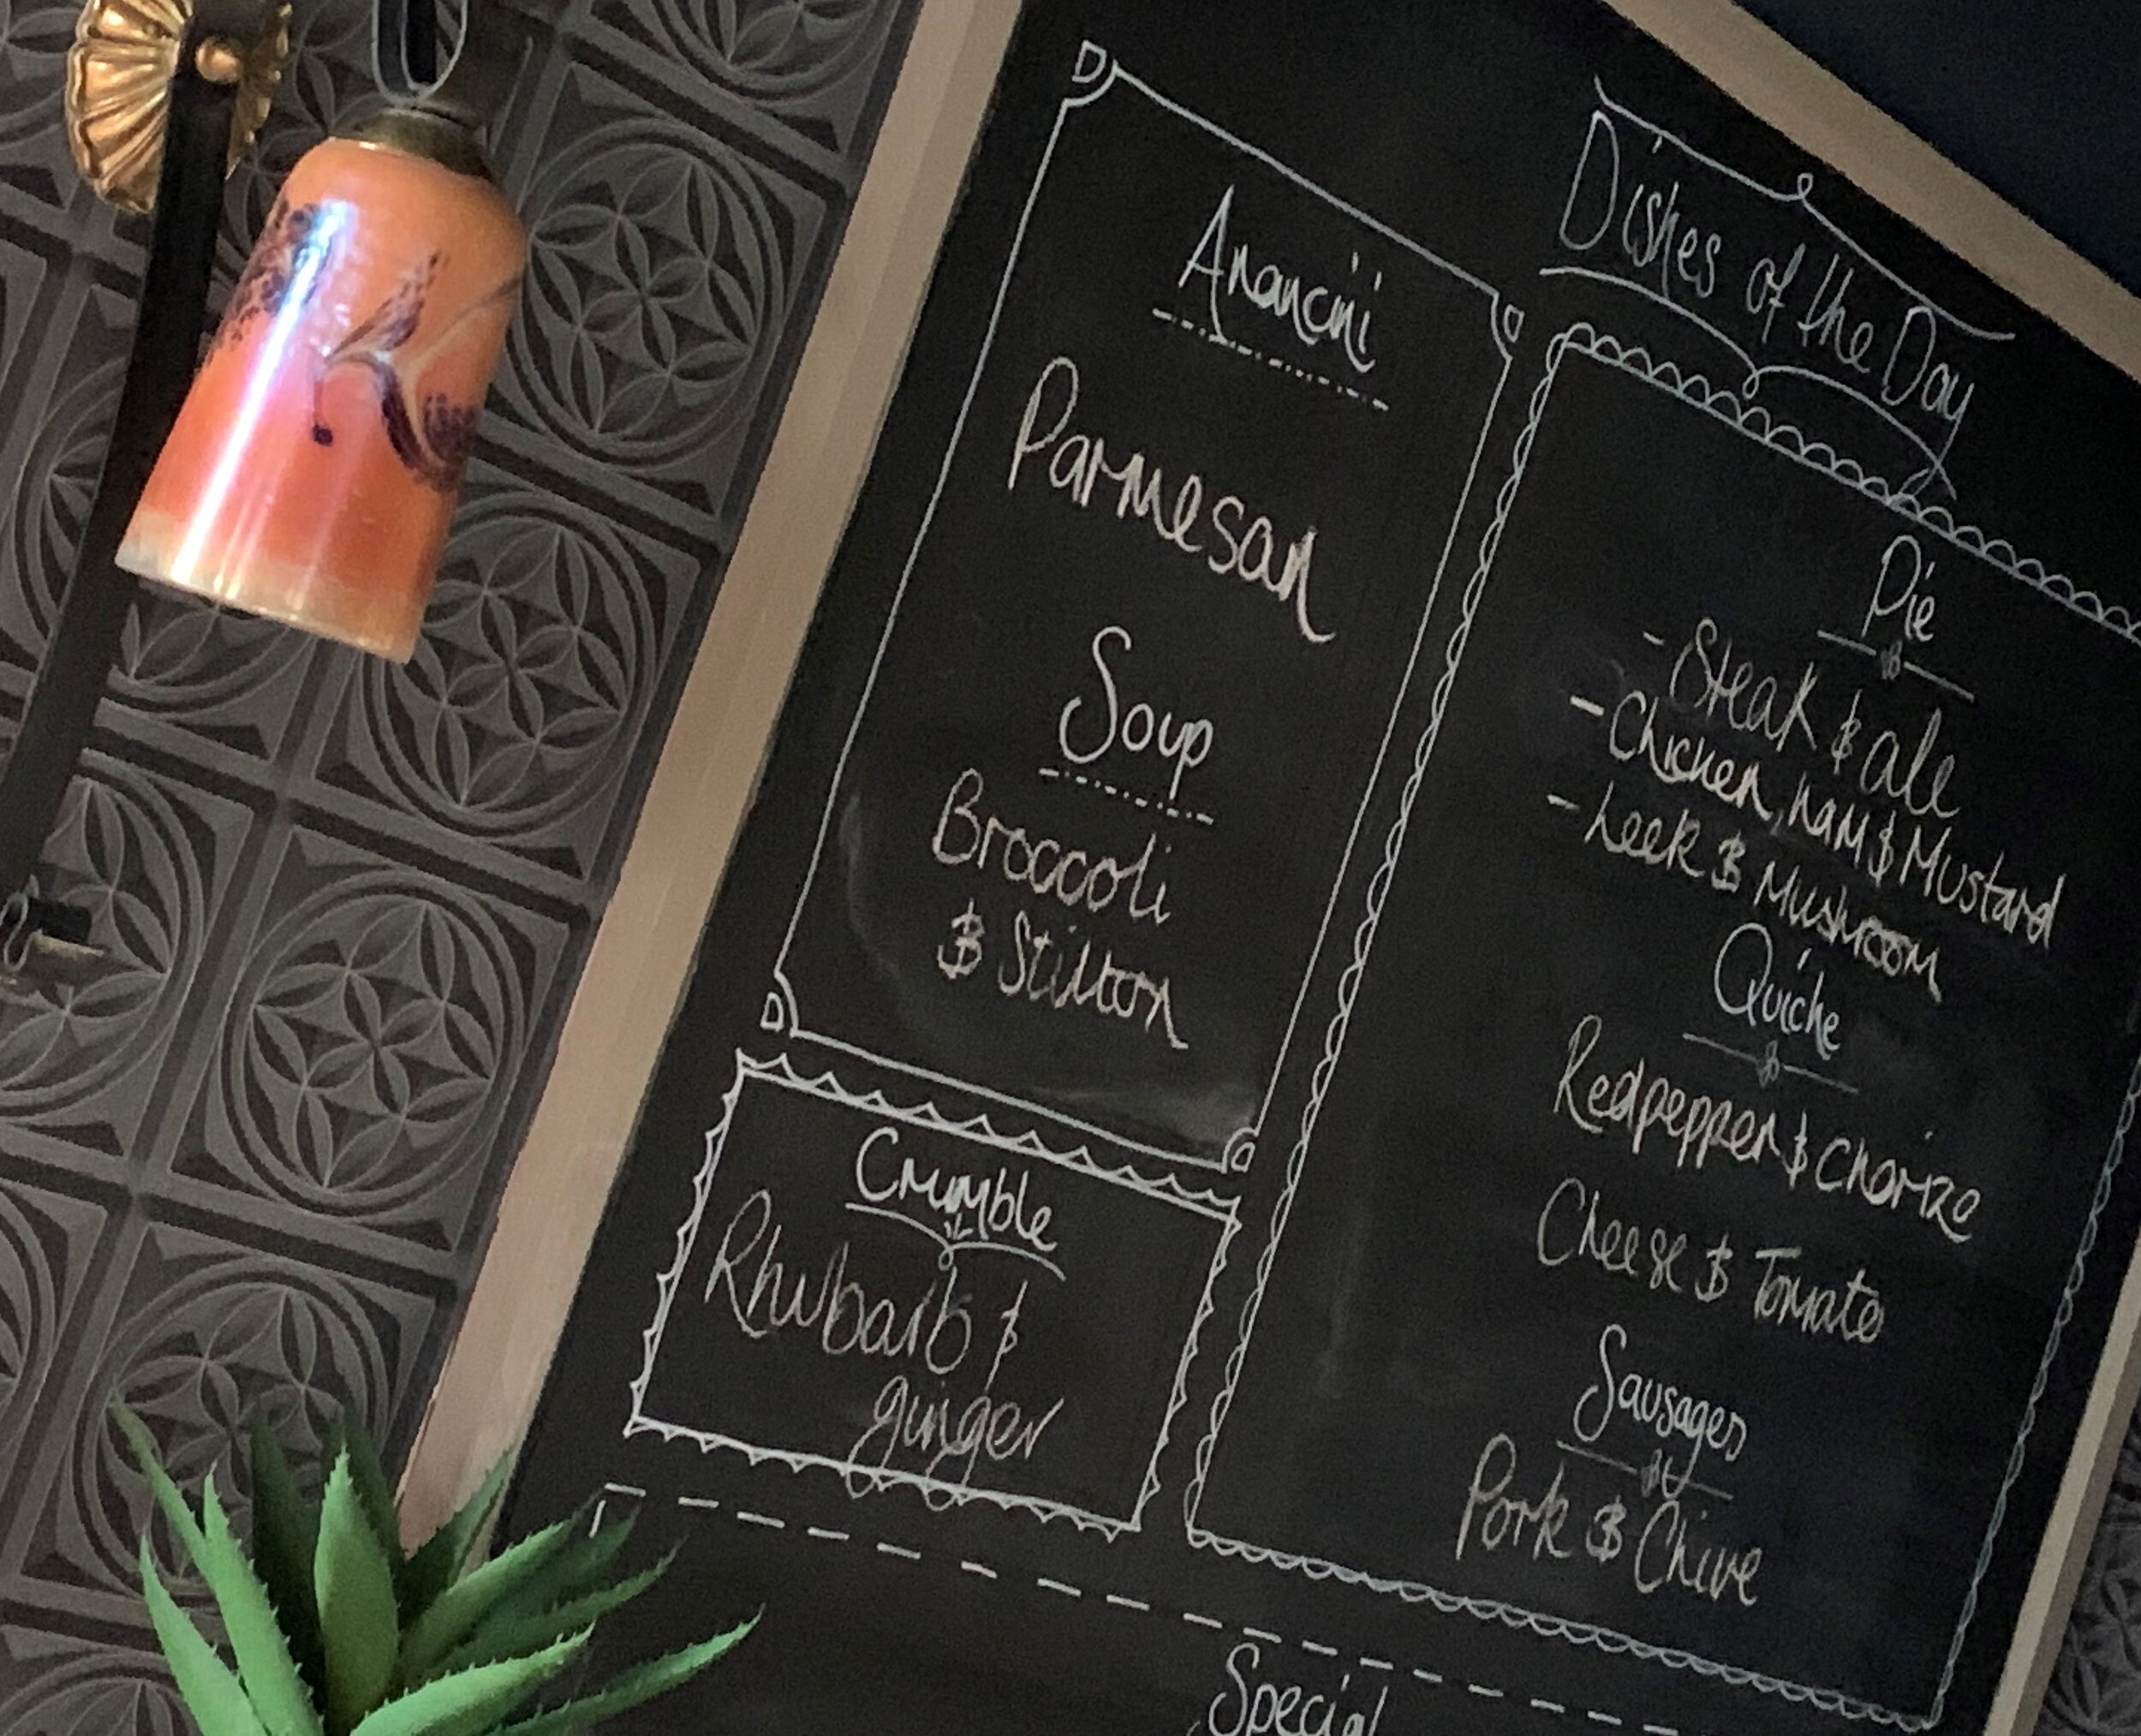 Dishes of the Day
Arancini
Parmesan
Soup
Broccoli
& Stilton
Crumble
Rhubarb &
ginger
Pie
- Steak & ale
- Chicken, ham & Mustard
- Leek & Mushroom
Quiche
Red pepper & chorizo
Cheese & Tomato
Sausages
Pork & Chive
Special